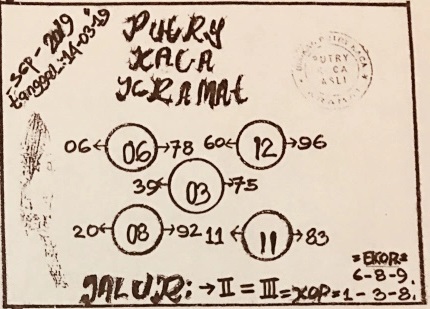 SGP - 2019
tanggal: 14-03-19
PUTRY
KACA
KRAMAt
PUTRY
CA
ASLI
06 ← 06 → 78
60 ← 12 → 96
39 ← 03 → 75
20 ← 08 → 92
11 ← 11 → 83
= EKOR =
6-8-9.
JALUR: → II = III = KOP = 1-3-8.